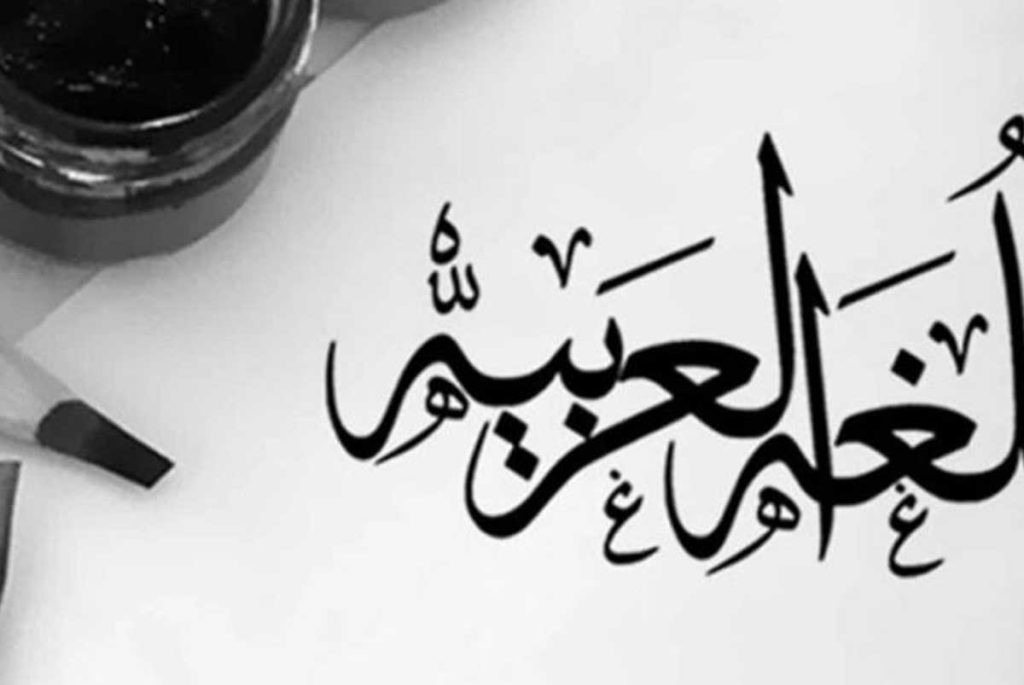 لُغه العربيه